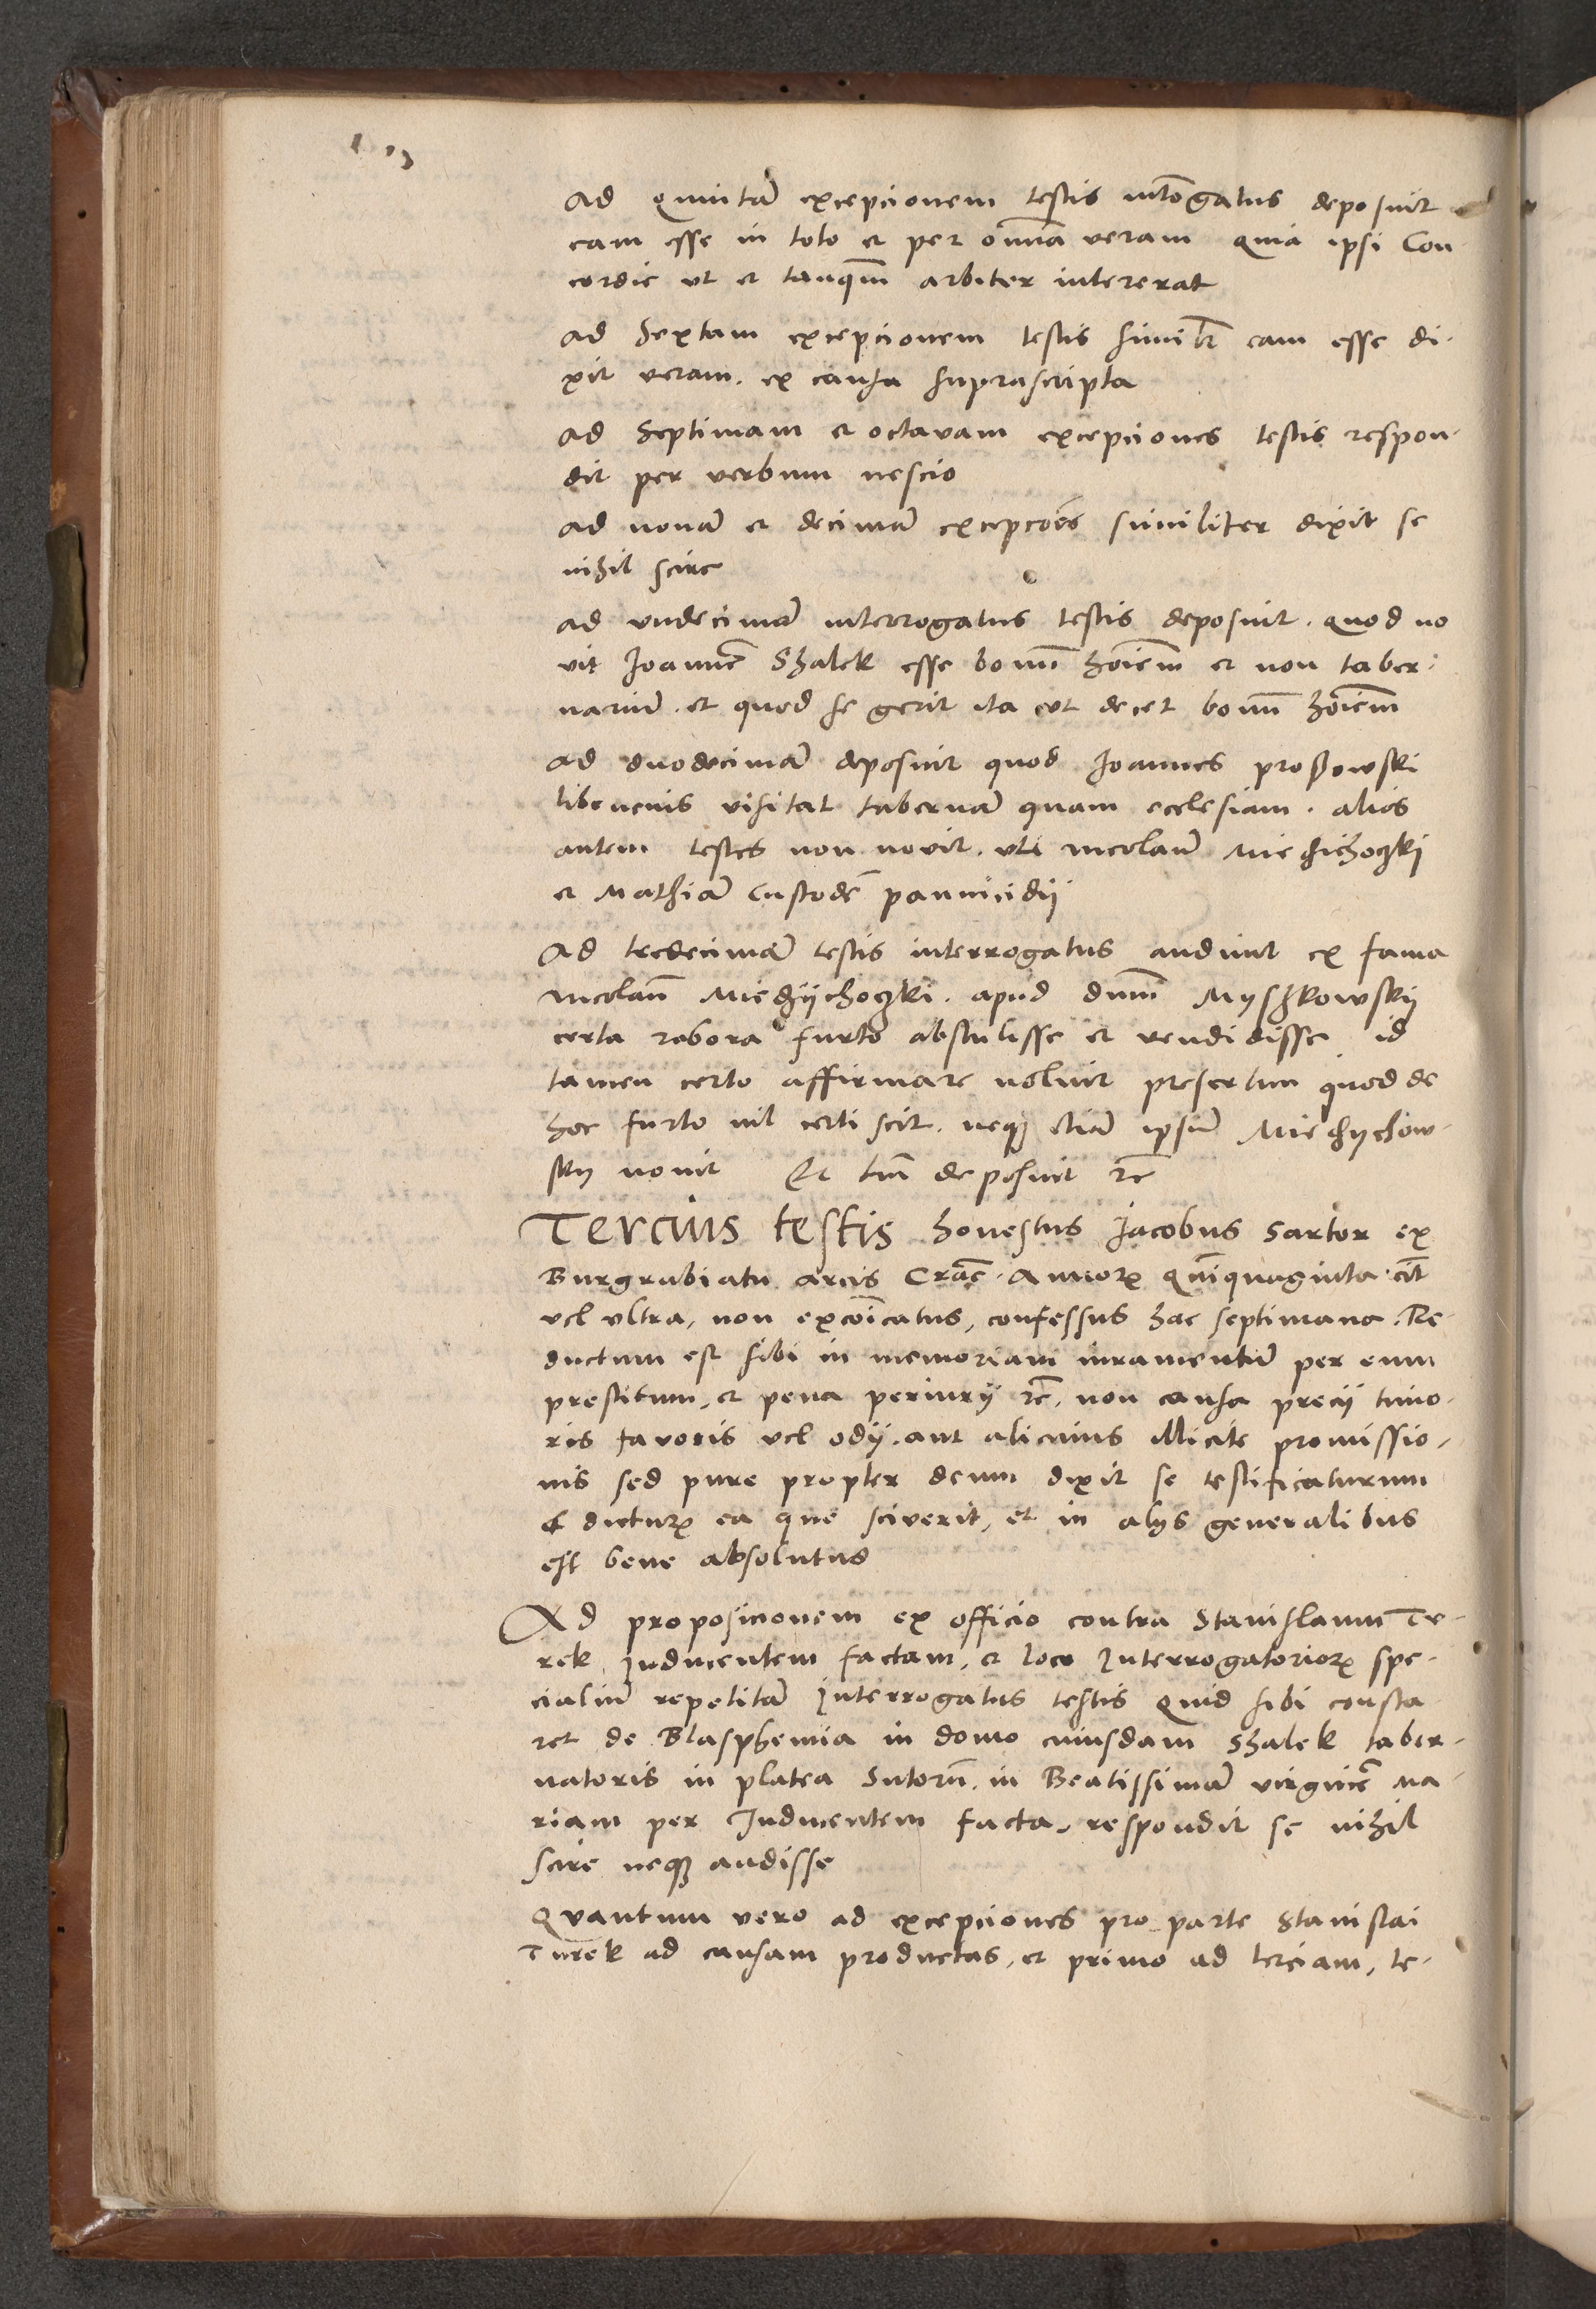 Ad quintã excepcionem testis intõgatus deposuit
eam esse in toto et per om̃ia veram quia ipsi Con-
cordie ut et tanq̃m arbiter intererat
Ad Sextam excepcionem testis similr̃ eam esse di-
xit veram. ex causa suprascripta
Ad Septimam et octavam excepciones testis respon-
dit per verbum nescio
Ad nonã et decimã excepcões similiter dixit se
nihil scire
Ad undecimã interrogatus testis deposuit. quod no
vit Joannẽ Shalek esse bonũ hõiem et non taber-
nariũ. et quod se gerit ita ut decet bonũ hõiem
Ad duodecimã deposuit quod Joannes proßowski
visitat tabernã quam ecclesiam. alios
autem testes non novit. uti nicolaũ
et Mathiã Custodẽ pannicidij
Ad tredecimã testis interrogatus audivit ex fama
nicolaũ apud dnũm Myszkowskij
certa robora furto abstulisse et vendidisse id
tamen certo affirmare noluit presertim quod de
hoc furto nil certi scit. neqȝ etiã ipsũ
novit Et tm̃ deposuit rc̃
Tercius testis honestus Jacobus Sartor ex
Burgrabiatu arcis Crac̃. Annorꝝ Quĩquaginta cit̃
vel ultra, non excõicatus, confessus hac septimana. Re-
ductum est sibi in memoriam iuramentũ per eum
prestitum, et pena periurij rc̃. non causa precij timo-
ris favoris vel odij. aut alicuius illicite promissio-
nis sed pure propter deum dixit se testificaturum
& dicturꝝ ea que sciverit, et in alijs generalibus
est bene absolutus
Ad proposicionem ex officio contra Stanislaum Tu-
rek Inducentem factam, et loco Interrogatoriorꝝ spe-
cialiũ repetitã Interrogatus testis Quid sibi consta
ret de Blasphemia in domo cuiusdam Shalek taber-
natoris in platea Sutorũ. in Beatissimã virginẽ Ma-
riam per Inducentem facta, respondit se nihil
scire neqȝ audisse
Quantum vero ad excepciones pro parte Stanislai
Turek ad causam productas, et primo ad terciam, te-